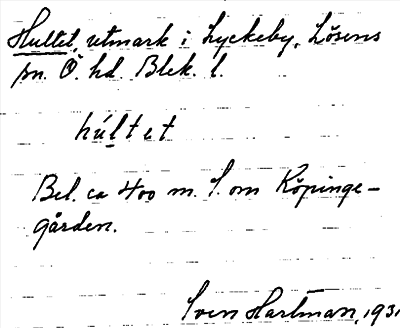 Hultet, utmark i Lyckeby, Lösens
sn. Ö. hd. Blek. l.
húltet
Bel. ca 400 m. S. om Köpinge-
gården.
Sven Hartman, 193